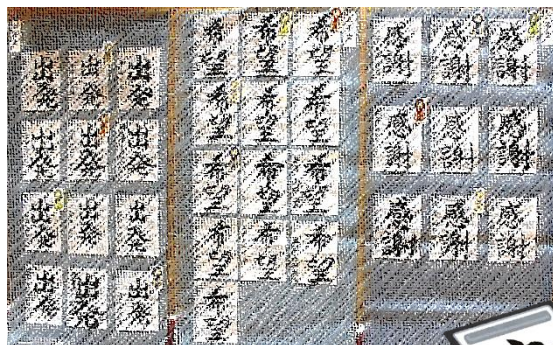 出発 出発 出発
出発 出発 出発
出発 出発 出発
出発 出発 出発
希望 希望 希望
希望 希望 希望
希望 希望 希望
希望 希望 希望
希望
感謝 感謝 感謝
感謝 感謝 感謝
感謝 感謝 感謝